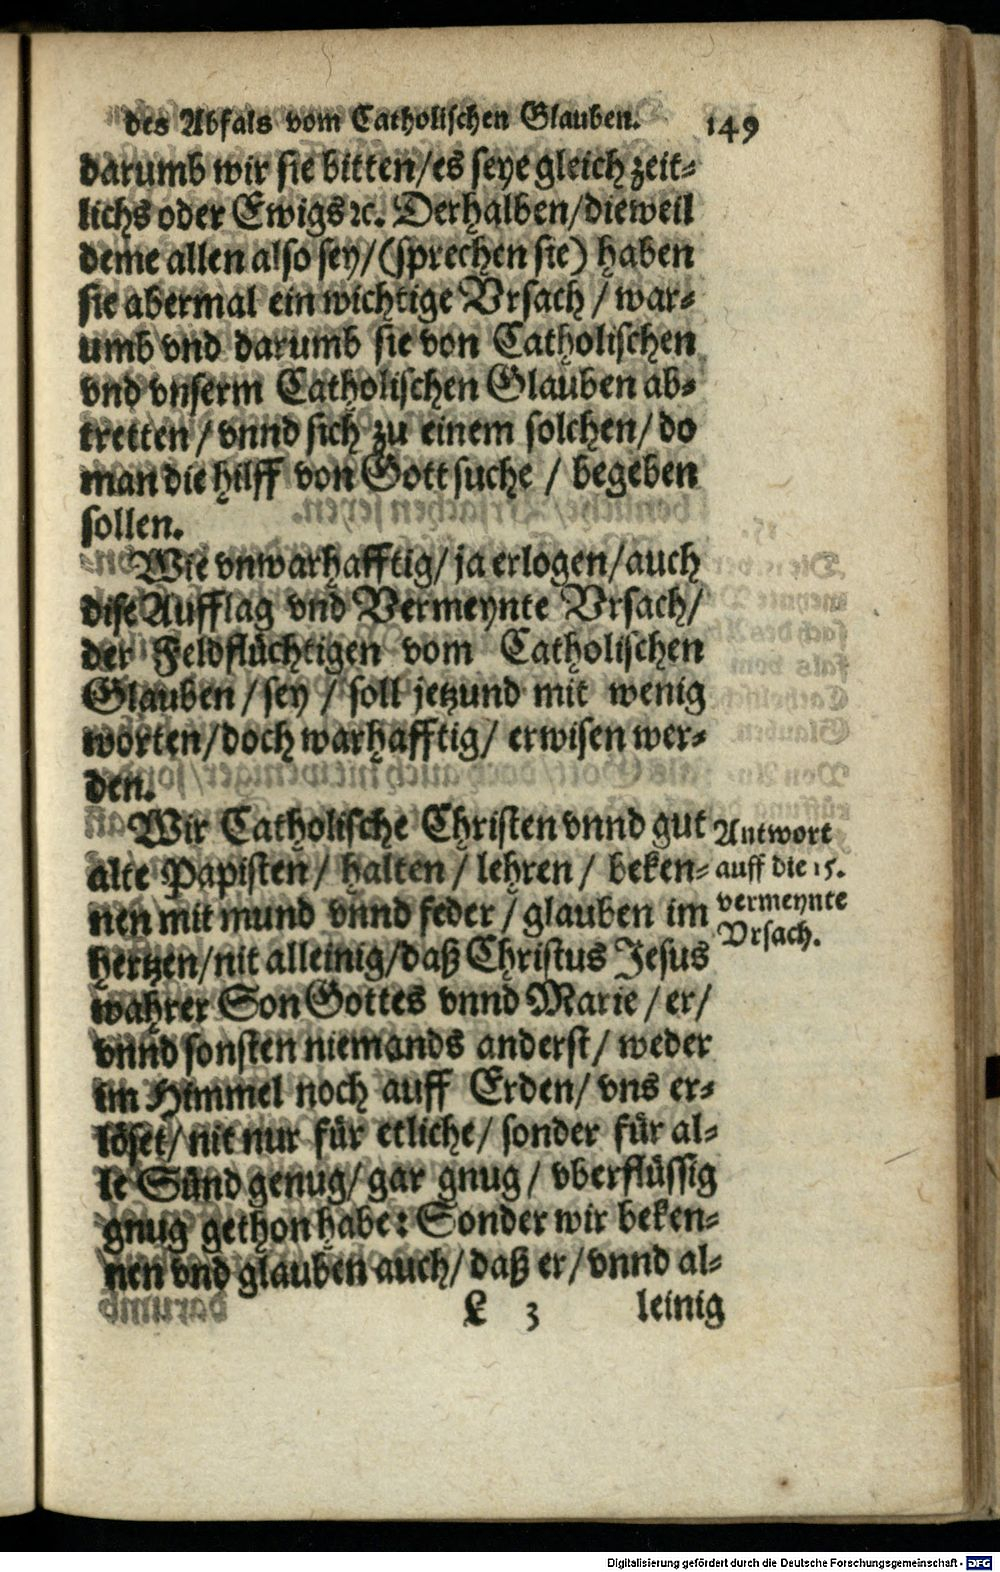 des Abfals vom Catholischen Glauben. 149
darumb wir sie bitten/es seye gleich zeit-
lichs oder Ewigs ꝛc. Derhalben/dieweil
deme allen also sey/(sprechen sie) haben
sie abermal ein wichtige Vrsach / war-
umb vnd darumb sie von Catholischen
vnd vnserm Catholischen Glauben ab-
tretten / vnnd sich zu einem solchen/ do
man die hilff von Gott suche / begeben
sollen.
Wie vnwarhafftig/ ja erlogen/auch
dise Aufflag vnd Vermeynte Vrsach/
der Feldflüchtigen vom Catholischen
Glauben / sey / soll jetzund mit wenig
worten/doch warhafftig/ erwisen wer-
den.
Wir Catholische Christen vnnd gut
alte Papisten/ halten / lehren / beken-
nen mit mund vnnd feder / glauben im
hertzen/nit alleinig/daß Christus Jesus
wahrer Son Gottes vnnd Marie / er/
vnnd sonsten niemands anderst/ weder
im Himmel noch auff Erden/ vns er-
löset/ nit nur für etliche/ sonder für al-
le Sünd genug/ gar gnug / vberflüssig
gnug gethon habe: Sonder wir beken-
nen vnd glauben auch/ daß er/ vnnd al-
Antwort
auff die 15.
vermeynte
Vrsach.
L 3 leinig
Digitalisierung gefördert durch die Deutsche Forschungsgemeinschaft - DFG